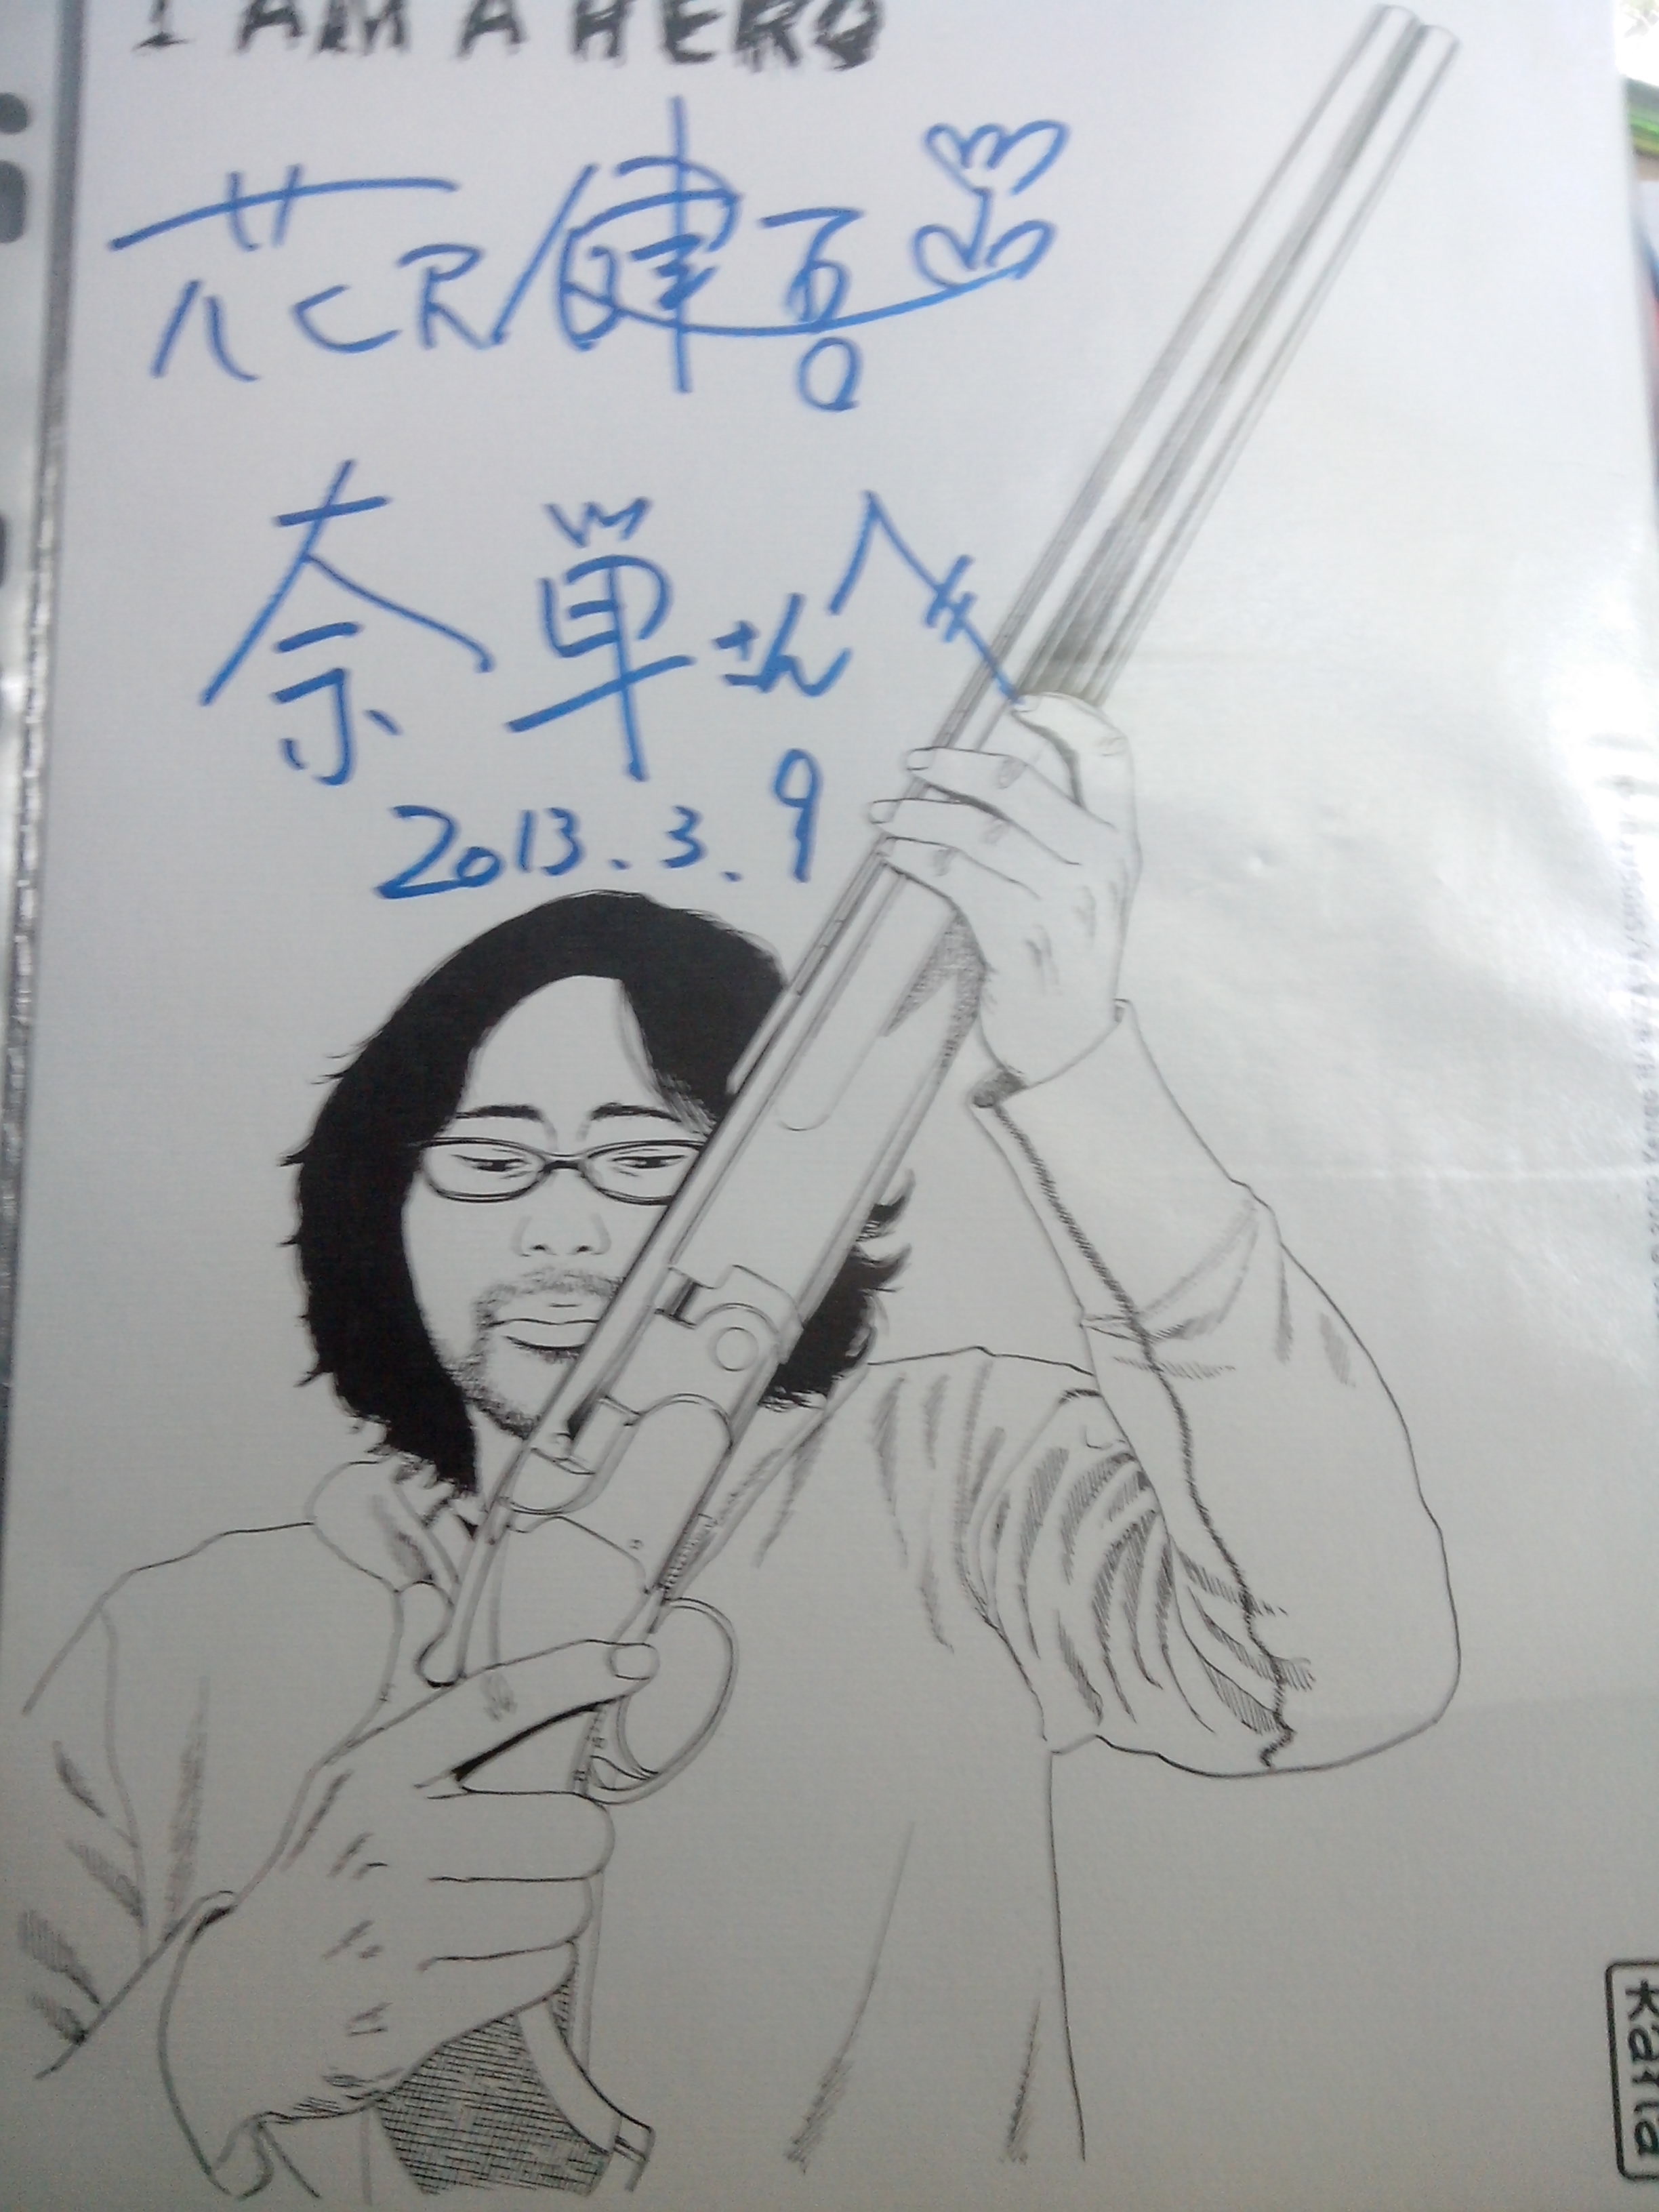 I AM A HERO
花沢健吾
奈単さんへ
2013.3.9
karta